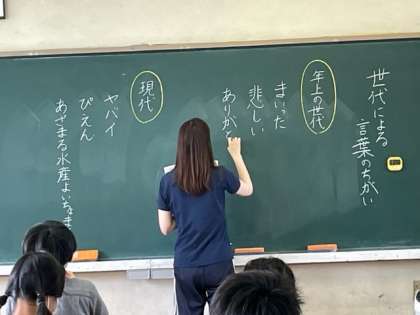 世代による
言葉のちがい
年上の世代
まいった
悲しい
ありがと
現代
ヤバイ
ぴえん
あざまる水産よいちょま